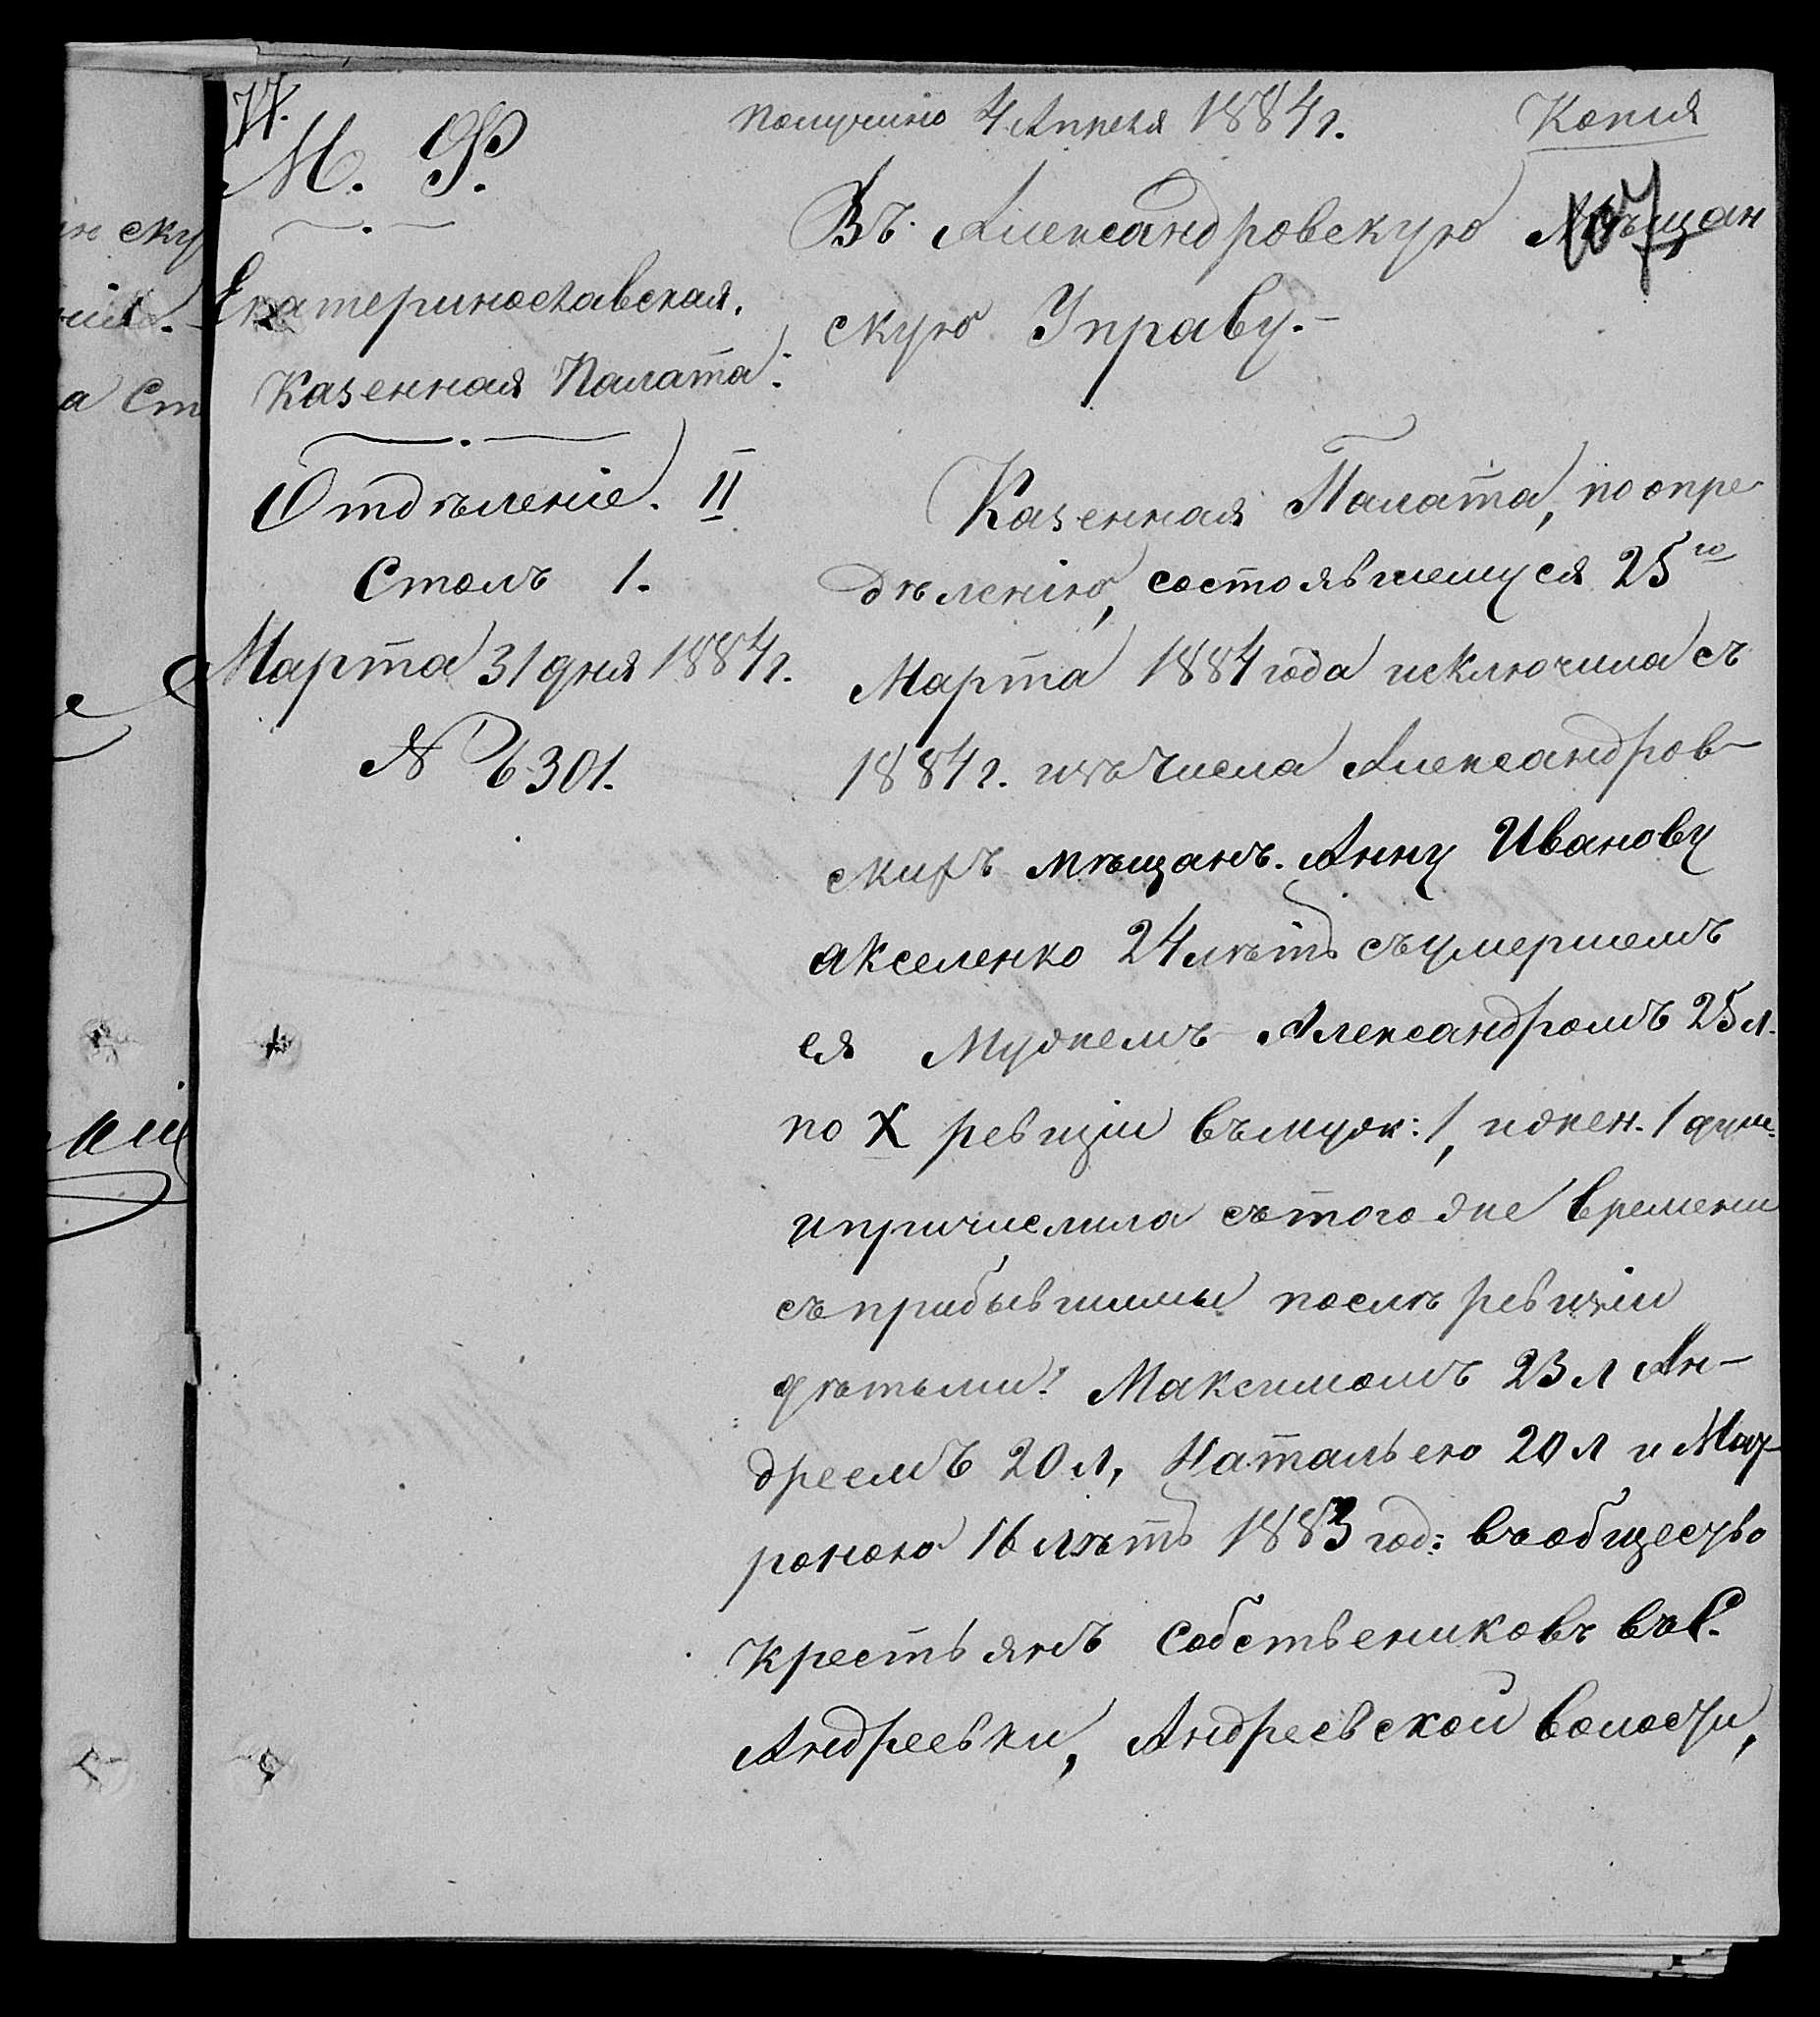 77.
получено 4 Апреля 1884 г.
Копія
107
М. Ф.
Екатеринославская.
Казенная Палата.
Отдѣленіе. II
Столъ 1.
Марта 31 дня 1884 г.
№ 6301.
Въ Александровскую Мѣщан
скую Управу.-
Казенная Палата, по опре
дѣленію, состоявшемуся 25го
Марта 1884 года исключила съ
1884 г. изъ числа Александров-
скихъ мѣщанъ. Анну Иванову
Акселенко 24 лѣтъ съ умершемъ
ея Мужемъ Александромъ 25 л.
по X ревизіи въ муж: 1, и жен. 1 душ.
и причислила съ того же времени
съ прибывшими послѣ ревизіи
дѣтьми: Максимомъ 23 л Ан-
дреемъ 20 л, Натальею 20 л и Мат-
роною 16 лѣтъ 1883 год: въ общество
крестьянъ собствениковъ въ С.
Андреевки, Андреевской волости,
ин ску
нія.
а Ст
кій